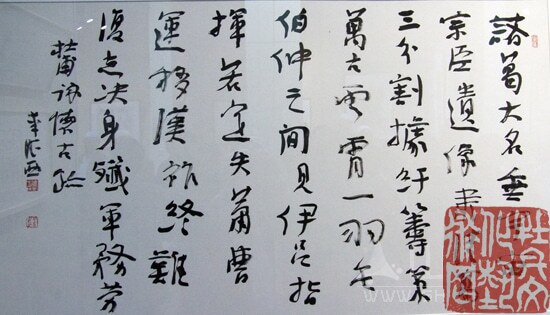 諸葛大名垂宇宙
宗臣遺像肅清高
三分割據紆籌策
萬古雲霄一羽毛
伯仲之間見伊呂指
揮若定失蕭曹
運移漢祚終難
復志決身殲軍務勞
杜甫詠懷古跡